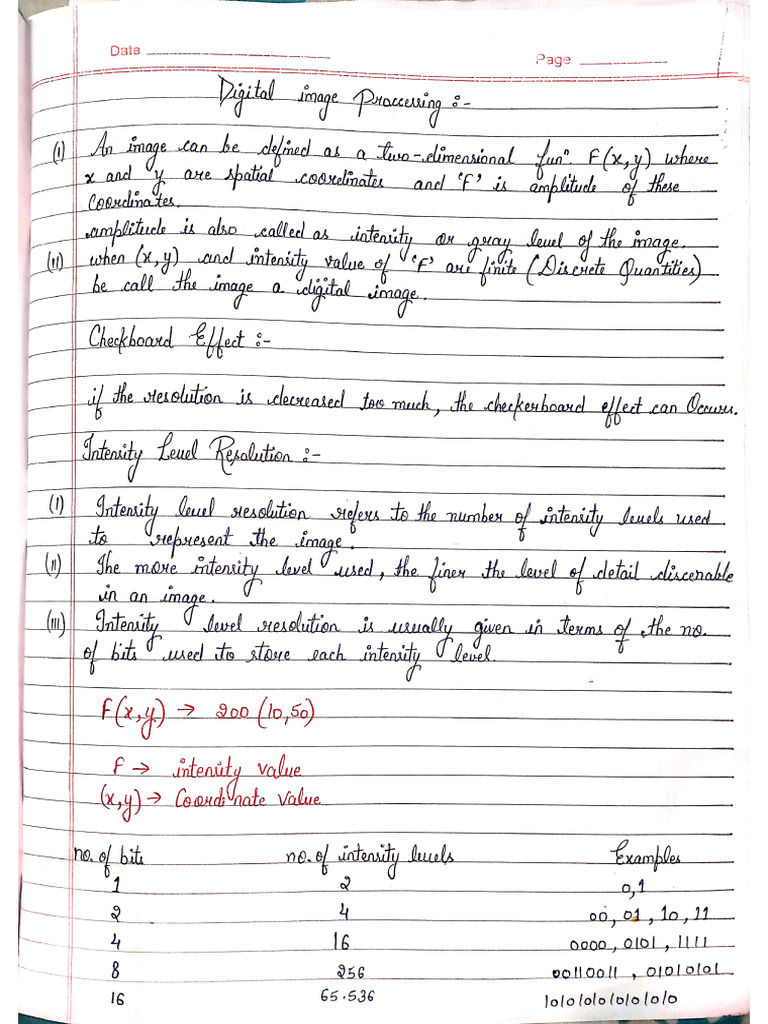 Date
Page
Digital image Proccessing :-
(I) An image can be defined as a two-dimensional funⁿ. F(x,y) where
x and y are spatial coordinates and 'F' is amplitude of these
Coordinates.
amplitude is also called as intensity or gray level of the image.
(II) when (x,y) and intensity value of 'F' are finite (Discrete Quantities)
be call the image a digital image.
Checkboard Effect :-
if the resolution is decreased too much, the checkerboard effect can Occurs.
Intensity Level Resolution :-
(I) Intensity level resolution refers to the number of intensity levels used
to represent the image.
(II) The more intensity level used, the finer the level of detail discenable
in an image.
(III) Intensity level resolution is usually given in terms of the no.
of bits used to store each intensity level.
F(x,y) → 200 (10,50)
F → intensity value
(x,y) → Coordinate value
no. of bits no. of intensity levels Examples
1 2 0,1
2 4 00, 01, 10, 11
4 16 0000, 0101, 1111
8 256 00110011, 01010101
16 65.536 10101010101010